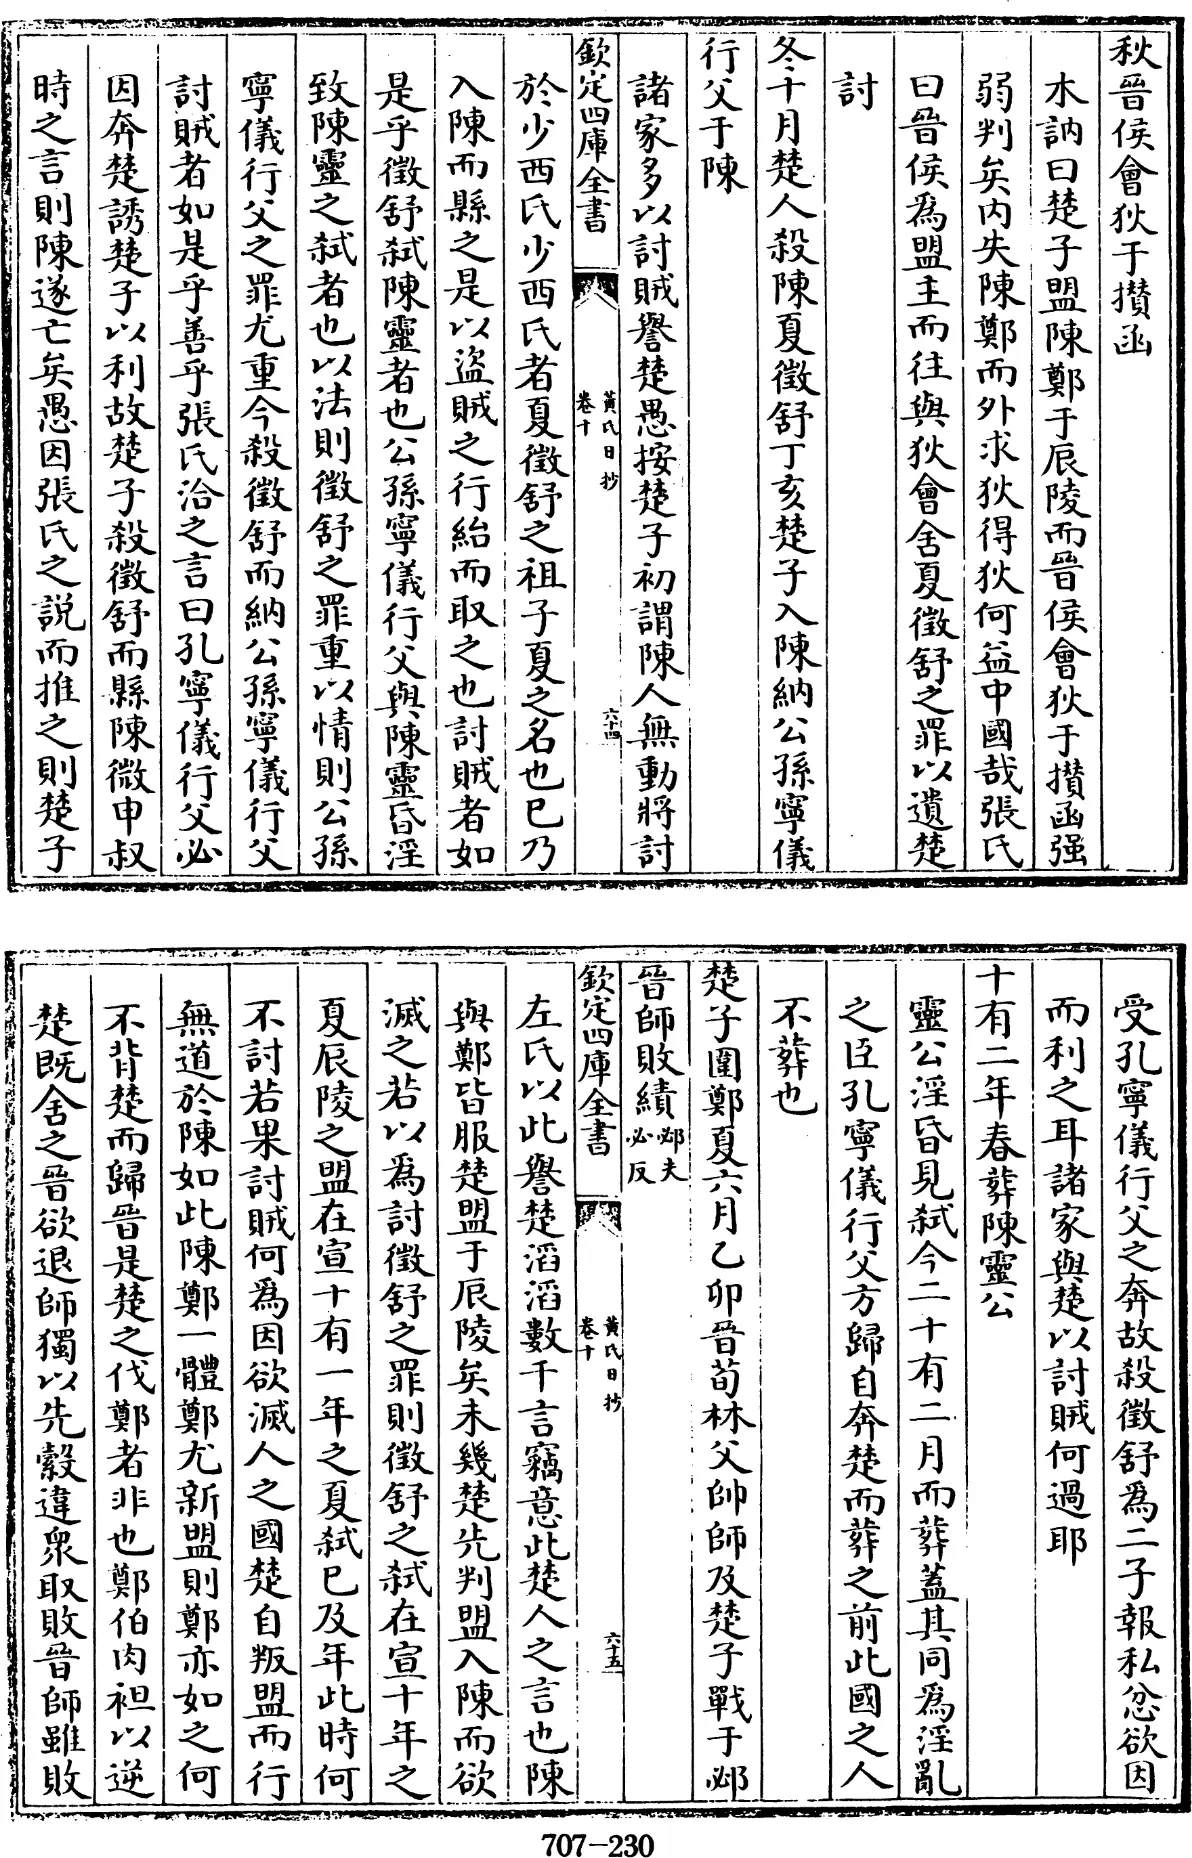 秋晉侯會狄于攅函
木訥曰楚子盟陳鄭于辰陵而晉侯會狄于攅函强
弱判矣内失陳鄭而外求狄得狄何益中國哉張氏
曰晉侯為盟主而往與狄會舍夏徵舒之罪以遺楚
討
冬十月楚人殺陳夏徵舒丁亥楚子入陳納公孫寧儀
行父于陳
諸家多以討賊譽楚愚按楚子初謂陳人無動將討
欽定四庫全書
黄氏日抄
卷十
六十四
於少西氏少西氏者夏徵舒之祖子夏之名也已乃
入陳而縣之是以盜賊之行紿而取之也討賊者如
是乎徵舒弑陳靈者也公孫寧儀行父與陳靈昏淫
致陳靈之弑者也以法則徵舒之罪重以情則公孫
寧儀行父之罪尤重今殺徵舒而納公孫寧儀行父
討賊者如是乎善乎張氏洽之言曰孔寧儀行父必
因奔楚誘楚子以利故楚子殺徵舒而縣陳微申叔
時之言則陳遂亡矣愚因張氏之說而推之則楚子
受孔寧儀行父之奔故殺徵舒為二子報私忿欲因
而利之耳諸家與楚以討賊何過耶
十有二年春葬陳靈公
靈公淫昏見弑今二十有二月而葬蓋其同為淫亂
之臣孔寧儀行父方歸自奔楚而葬之前此國之人
不葬也
楚子圍鄭夏六月乙卯晉荀林父帥師及楚子戰于邲
晉師敗績邲扶必反
欽定四庫全書
黄氏日抄
卷十
六十五
左氏以此譽楚滔滔數千言竊意此楚人之言也陳
與鄭皆服楚盟于辰陵矣未幾楚先判盟入陳而欲
滅之若以為討徵舒之罪則徵舒之弑在宣十年之
夏辰陵之盟在宣十有一年之夏弑已及年此時何
不討若果討賊何為因欲滅人之國楚自叛盟而行
無道於陳如此陳鄭一體鄭尤新盟則鄭亦如之何
不背楚而歸晉是楚之伐鄭者非也鄭伯肉袒以逆
楚既舍之晉欲退師獨以先縠違衆取敗晉師雖敗
707-230